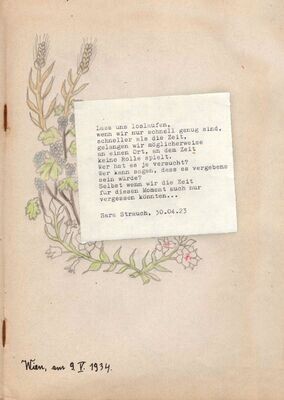 Lass uns loslaufen,
wenn wir nur schnell genug sind,
schneller als die Zeit,
gelangen wir möglicherweise
an einen Ort, an dem Zeit
keine Rolle spielt.
Wer hat es je versucht?
Wer kann sagen, dass es vergebens
sein würde?
Selbst wenn wir die Zeit
für diesen Moment auch nur
vergessen könnten...
Sara Strauch, 30.04.23
Wien, am 9. V. 1934.